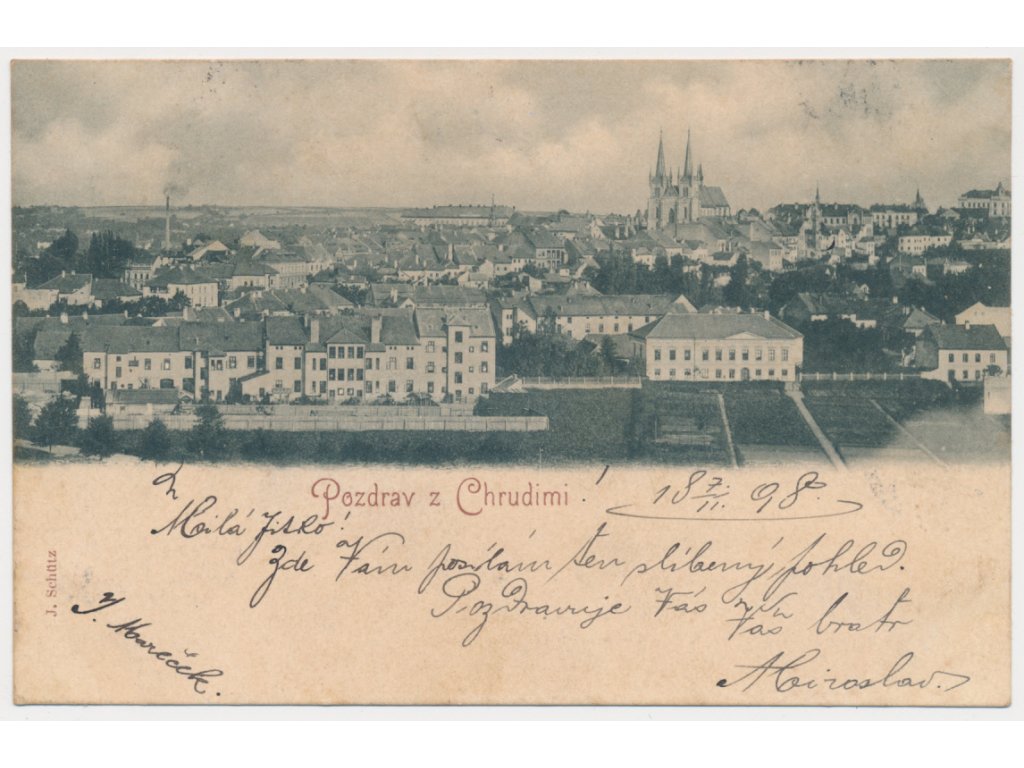 Pozdrav z Chrudimi !
18 7./11. 98.
Milá Jitko!
Zde Vám posílám ten slíbený pohled.
Pozdravuje Vás Váš bratr
Miroslav.
J. Mareček.
J. Schütz